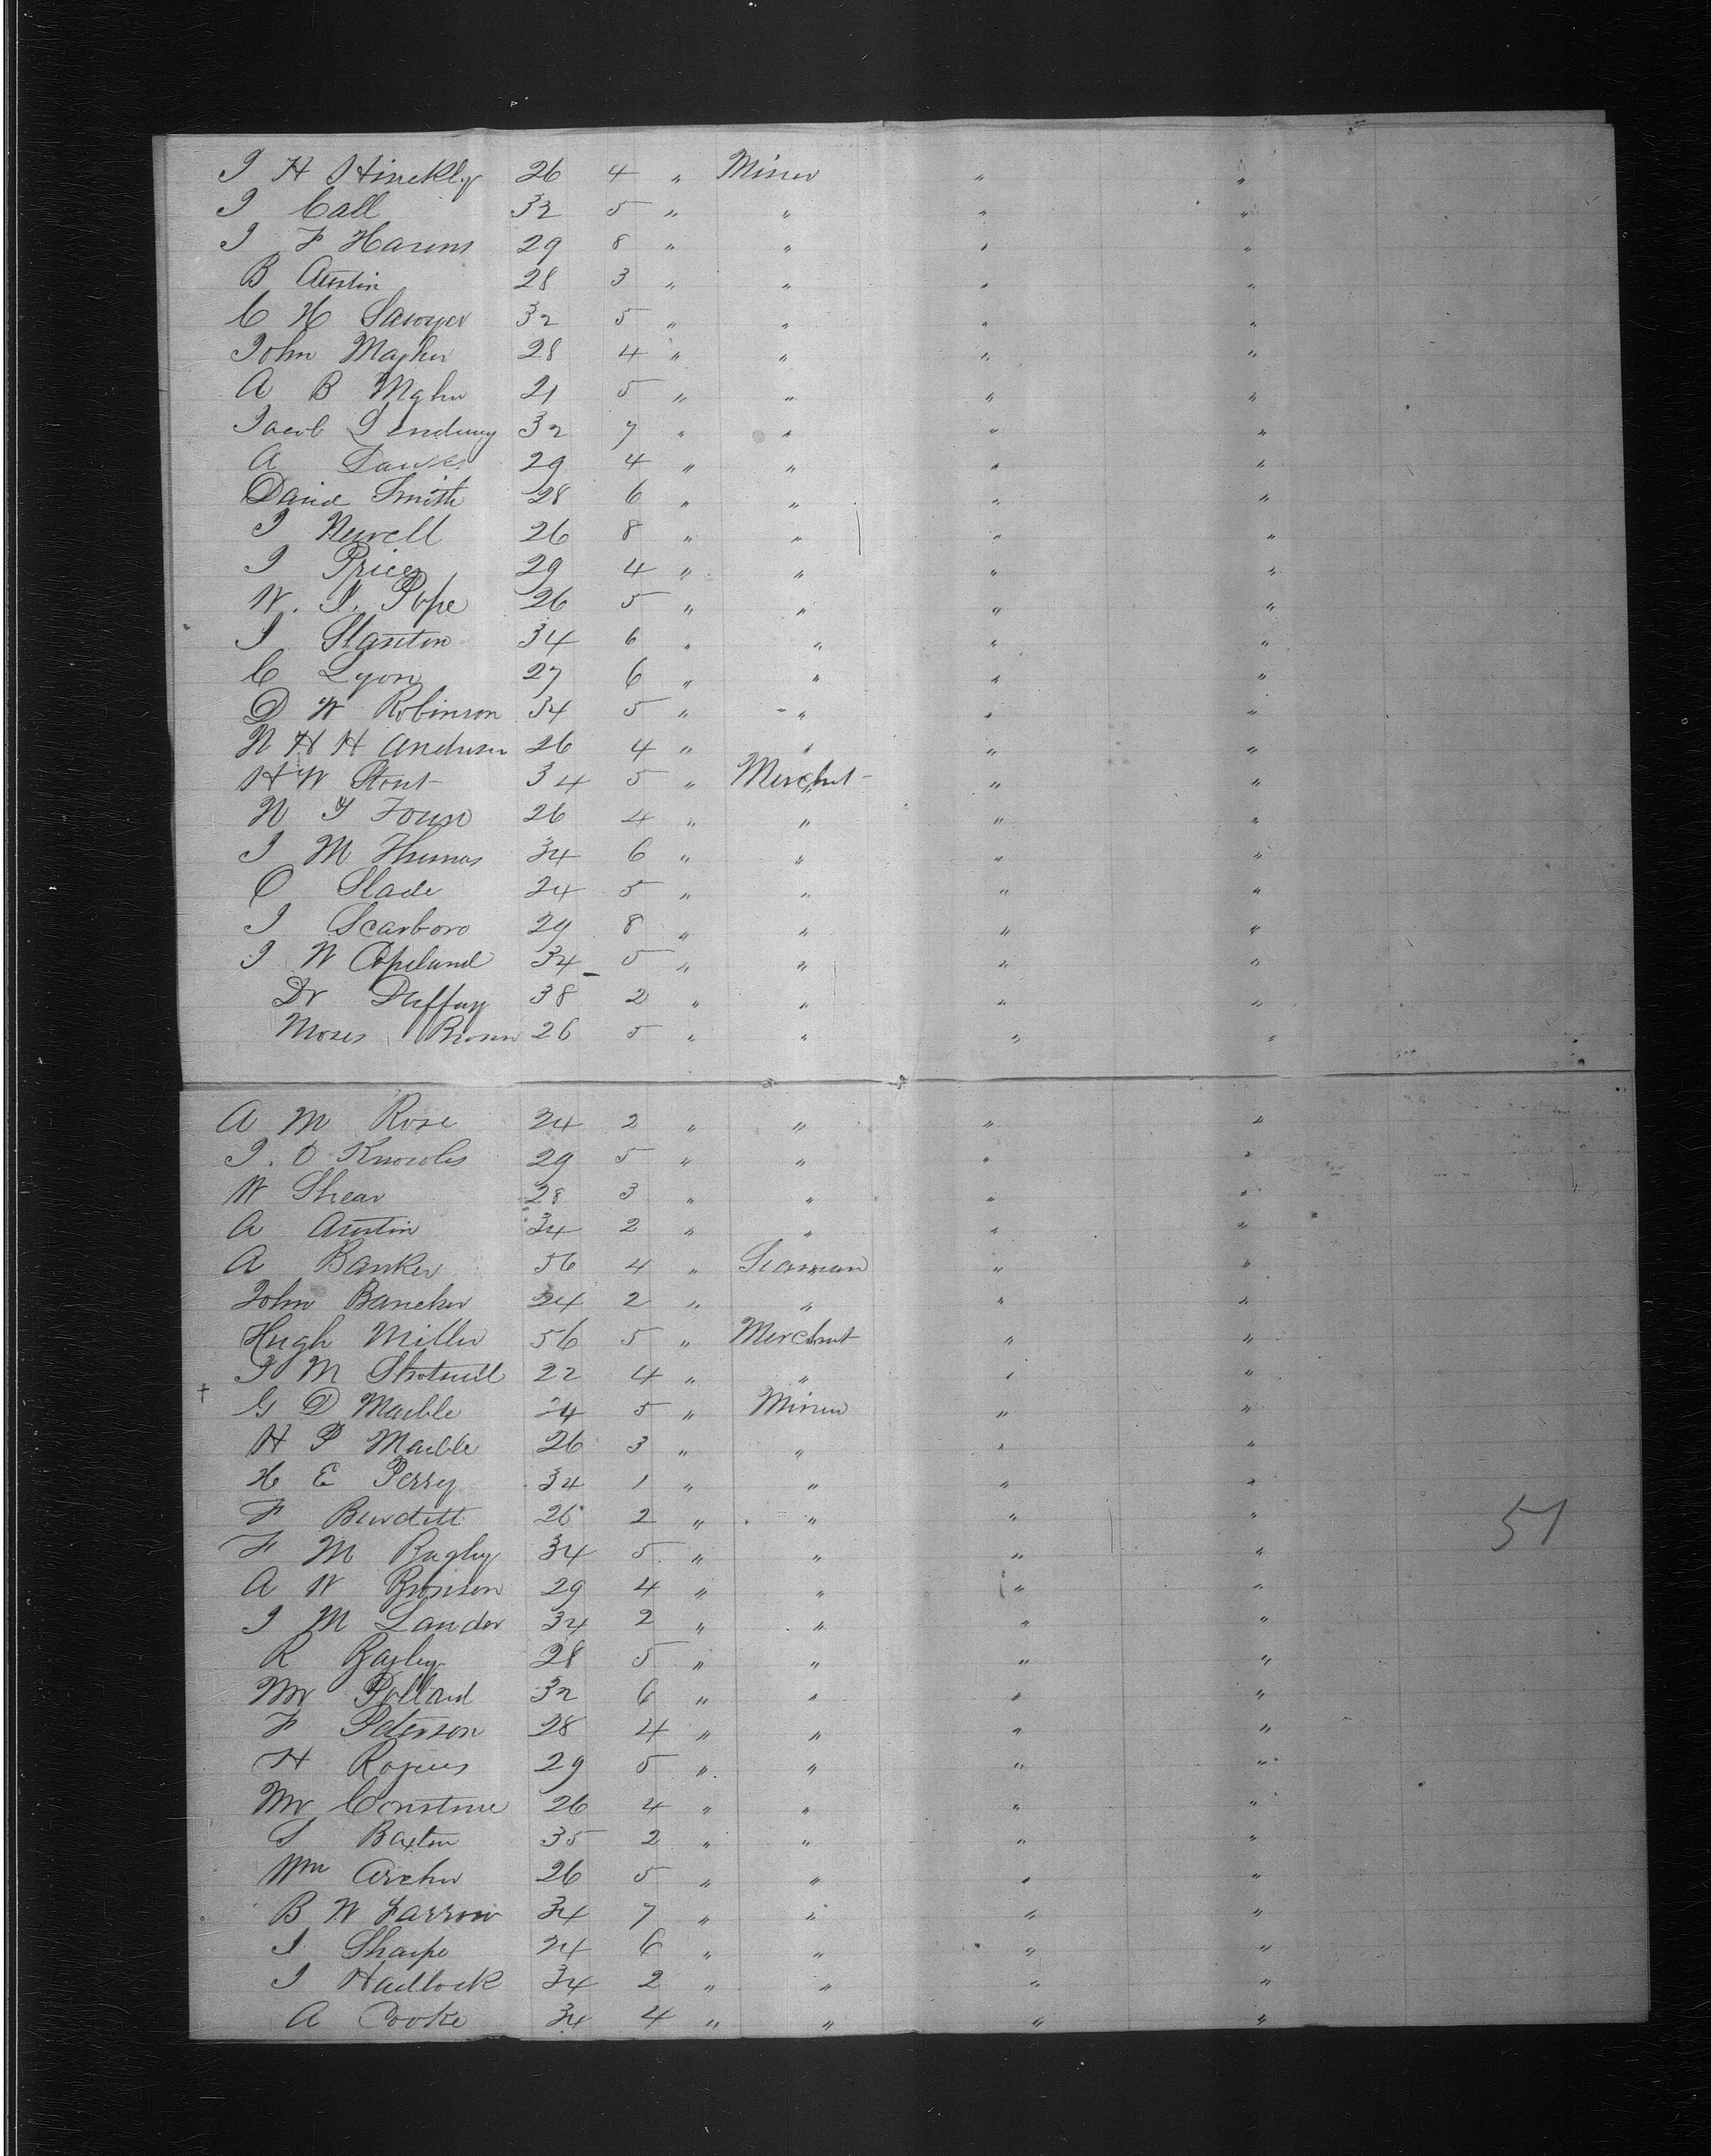 J H Hinckly 26 4 " Miner " "
J Call 32 5 " " " "
J F Havens 29 8 " " " "
B Austin 28 3 " " " "
C H Sawyer 32 5 " " " "
John 28 4 " " " "
A B 21 5 " " " "
Jacob 32 7 " " " "
A 29 4 " " " "
David Smith 28 6 " " " "
J Newell 26 8 " " " "
J Price 29 4 " " " "
W. J. Pope 26 5 " " " "
J Stanton 34 6 " " " "
C Lyon 27 6 " " " "
D W Robinson 34 5 " " " "
N H H Anderson 26 4 " " " "
H W Stout 34 5 " Merchnt " "
N 26 4 " " " "
J M Thomas 34 6 " " " "
O Slade 24 5 " " " "
J Scarboro 29 8 " " " "
J W Copeland 34 5 " " " "
Dr Duffay 38 2 " " " "
Moses Brown 26 5 " " " "
A M Rose 24 2 " " " "
J. O Knowles 29 5 " " " "
W Shear 28 3 " " " "
A Austin 34 2 " " " "
A Banker 56 4 " Seaman " "
John Bancker 24 2 " " " "
Hugh Miller 56 5 " Merchnt " "
J M Shotwell 22 4 " " " "
G D Marble 24 5 " Miner " "
H P Marble 26 3 " " " "
H E Perry 34 1 " " " "
F Burdett 26 2 " " " "
51
F M Bagley 34 5 " " " "
A W Bronson 29 4 " " " "
J M Lander 34 2 " " " "
R Bagley 28 5 " " " "
Mr Pollard 32 6 " " " "
F Peterson 28 4 " " " "
H Rogers 29 5 " " " "
Mr 26 4 " " " "
S Baxter 35 2 " " " "
Wm Archer 26 5 " " " "
B W Farrow 34 7 " " " "
J Sharpe 24 6 " " " "
J Hadlock 34 2 " " " "
A Cooke 34 4 " " " "